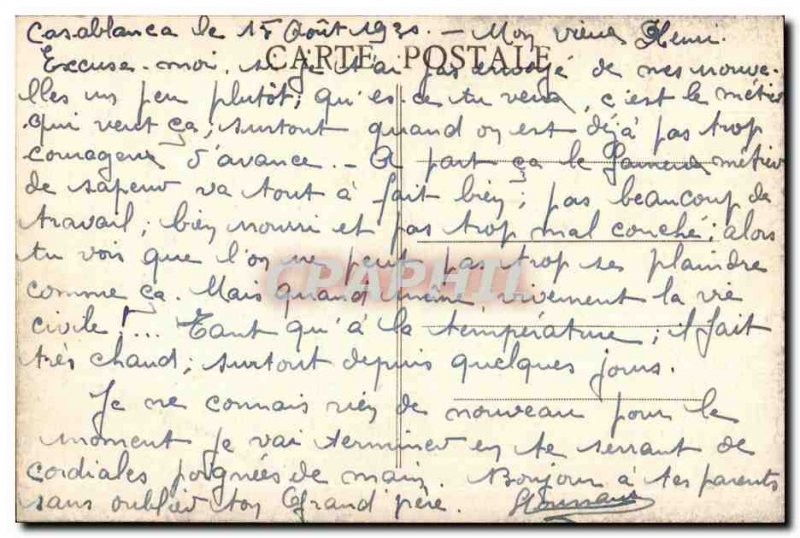 Casablanca le 15 Août 1930. - Mon vieux Henri.
CARTE POSTALE
Excuse-moi, si je t'ai pas envoyé de mes nouve-
lles un peu plutôt; qu'es-ce tu veux, c'est le métier
qui veut ça; surtout quand on est déjà pas trop
courageux d'avance. - A part ça le fameux métier
de sapeur va tout à fait bien; pas beaucoup de
travail; bien nourri et pas trop mal couché; alors
tu vois que l'on ne peut pas trop se plaindre
comme ça. Mais quand même, vivement la vie
civile!... Tant qu'à la température; il fait
très chaud; surtout depuis quelques jours.
Je ne connais rien de nouveau pour le
moment je vai terminer en te serrant de
cordiales poignées de main. Bonjour à tes parents
sans oublier ton Grand père.
CPAPHIL